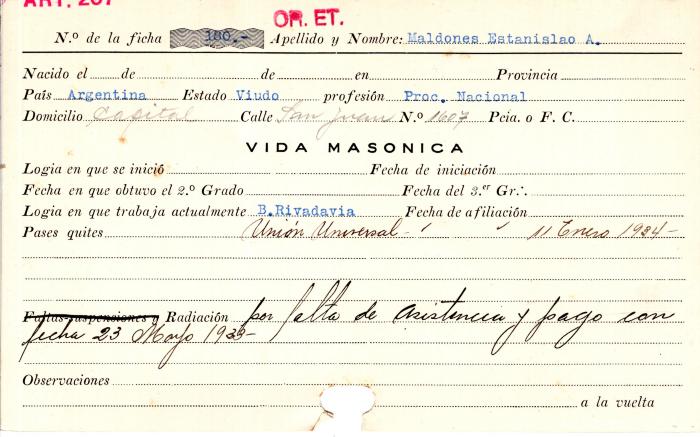 ART. 207
OR. ET.
N.º de la ficha 180.- Apellido y Nombre: Maldones Estanislao A.
Nacido el de de en Provincia
País Argentina Estado Viudo profesión Proc. Nacional
Domicilio Capital Calle San Juan N.º 1607 Pcia. o F. C.
VIDA MASONICA
Logia en que se inició Fecha de iniciación
Fecha en que obtuvo el 2.º Grado Fecha del 3.er Gr.·.
Logia en que trabaja actualmente B.Rivadavia Fecha de afiliación
Pases quites Unión Universal - ′ ′ 11 Enero 1934-
Faltas-suspensiones y Radiación por falta de asistencia y pago con
fecha 23 Mayo 1933-
Observaciones
a la vuelta